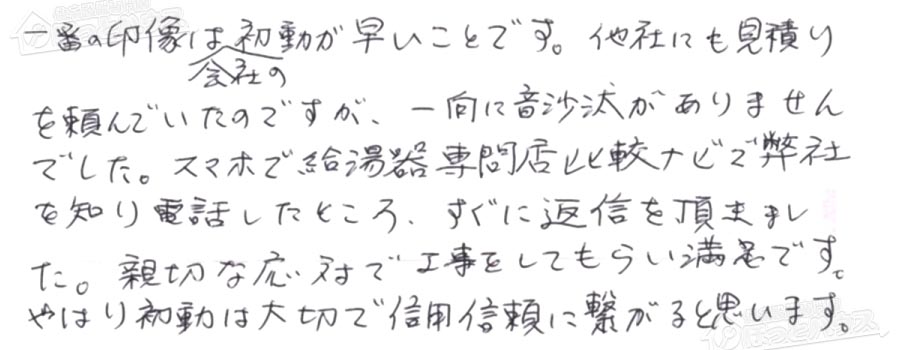 一番の印象は会社の初動が早いことです。他社にも見積り
を頼んでいたのですが、一向に音沙汰がありません
でした。スマホで給湯器専門店比較ナビで弊社
を知り電話したところ、すぐに返信を頂きまし
た。親切な応対で工事をしてもらい満足です。
やはり初動は大切で信用信頼に繋がると思います。